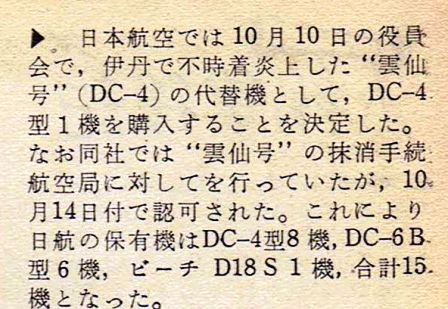 ▶ 日本航空では10月10日の役員
会で，伊丹で不時着炎上した“雲仙
号”(DC-4)の代替機として，DC-4
型1機を購入することを決定した。
なお同社では“雲仙号”の抹消手続
航空局に対してを行っていたが，10
月14日付で認可された。これにより
日航の保有機はDC-4型8機，DC-6B
型6機，ビーチ D18S 1機，合計15
機となった。